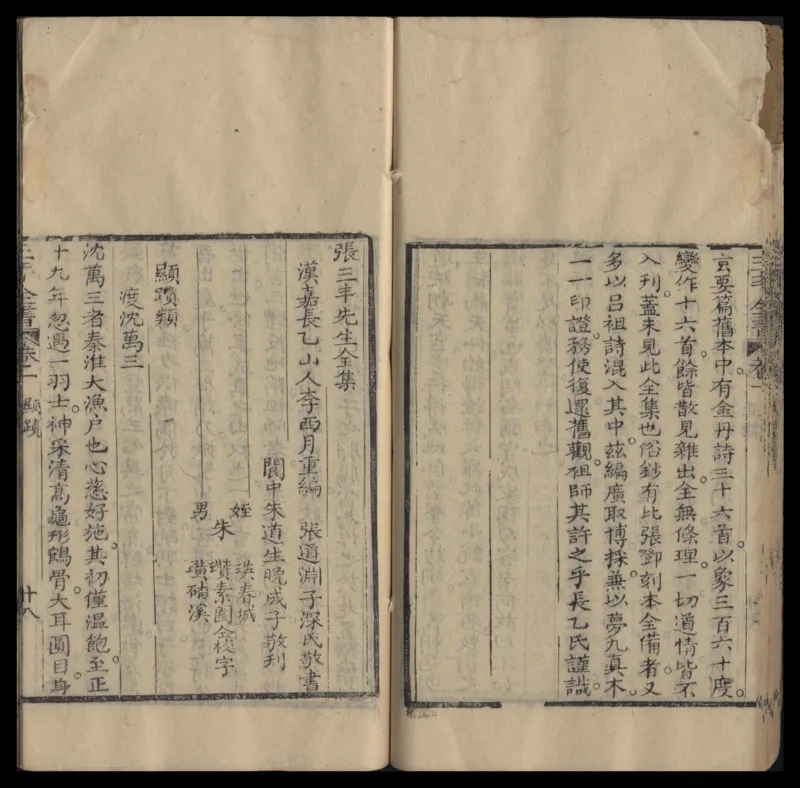 玄要篇舊本中。有金丹詩三十六首。以象三百六十度。
變作十六首。餘皆散見雜出。全無條理。一切道情皆不
入刋。蓋未見此全集也。俗鈔有比張鄧刻本全備者。又
多以呂祖詩混入其中。茲編廣取博採。兼以夢九真本。
一一印證。務使復還舊觀。祖師其許之乎。長乙氏謹識。
張三丰先生全集
漢嘉長乙山人李西月重編　張道淵子深氏敬書
閬中朱道生晚成子敬刋
姪　洪春城
朱　瓚素園仝校字
男　黃碕溪
顯蹟類
渡沈萬三
沈萬三者。秦淮大漁戶也。心慈好施。其初僅溫飽。至正
十九年。忽遇一羽士。神采清高。龜形鶴骨。大耳圓目。身
三丰全書　卷二　顯蹟　十八